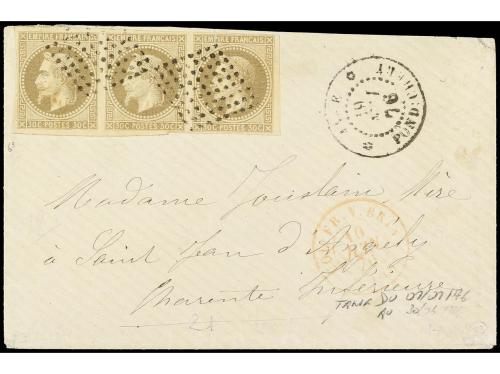 EMPIRE FRANÇAIS EMPIRE FRANÇAIS EMPIRE FRANÇAIS
30C POSTES 30C 30C POSTES 30C 30C POSTES 30C
PONDICHERY
76
Madame Jouslain, Mère
à Saint Jean d'Angely
Charente Inférieure
TARIF DU
AU